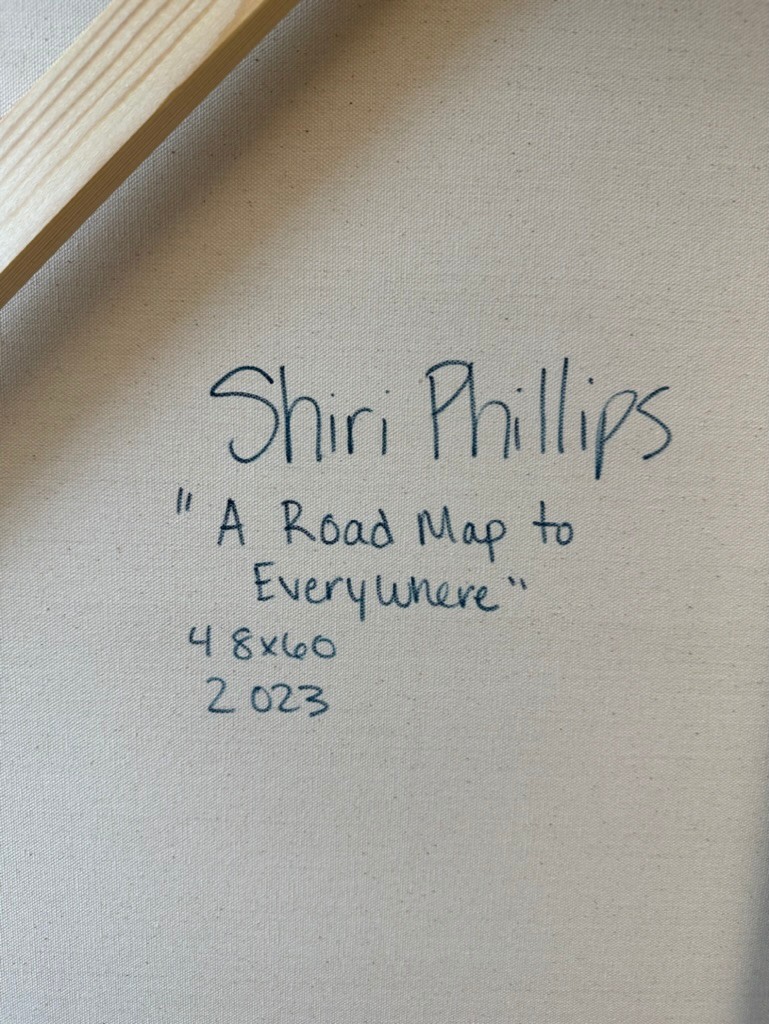 Shiri Phillips
"A Road Map to
Everywhere"
48x60
2023